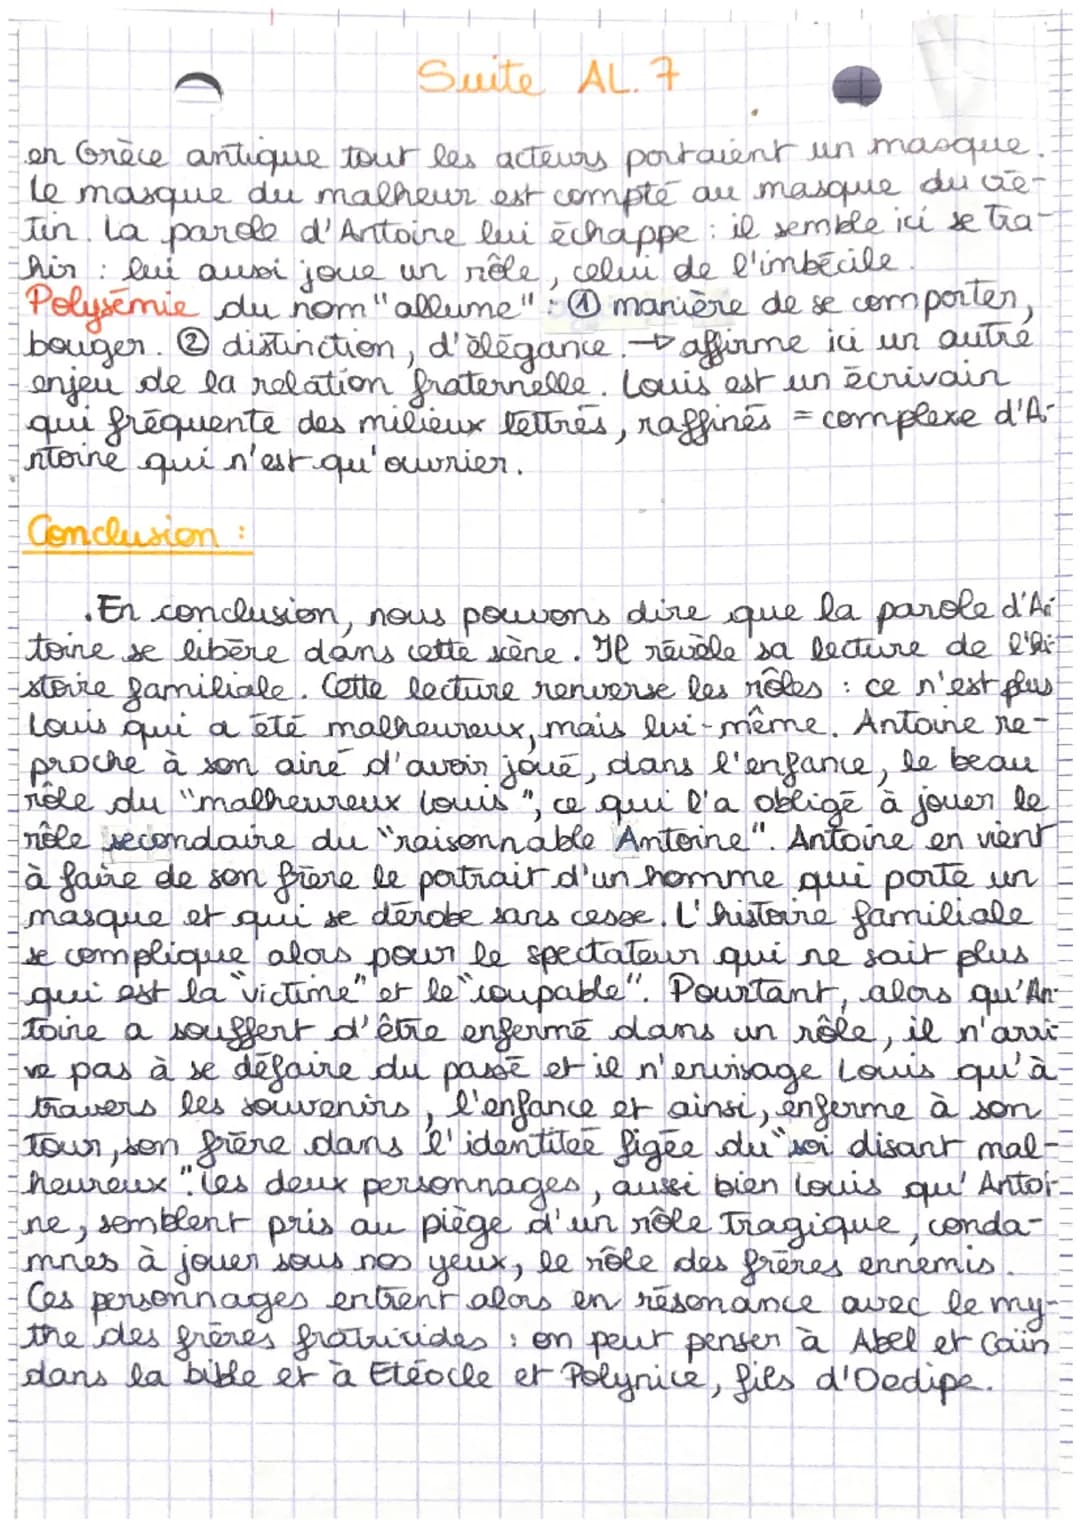 Suite AL.7
en Grèce antique tout les acteurs portaient un masque.
Le masque du malheur est compté au masque du cré-
tin. La parole d'Antoine lui échappe : il semble ici se tra-
hir : lui aussi joue un rôle, celui de l'imbécile.
Polysémie du nom "allume" : ① manière de se comporter,
bouger. ② distinction, d'élégance. → affirme ici un autre
enjeu de la relation fraternelle. Louis est un écrivain
qui fréquente des milieux lettrés, raffinés = complexe d'A-
ntoine qui n'est qu'ouvrier.
Conclusion :
.En conclusion, nous pouvons dire que la parole d'An
toine se libère dans cette scène. Il révèle sa lecture de l'hi
stoire familiale. Cette lecture renverse les rôles : ce n'est plus
Louis qui a été malheureux, mais lui-même. Antoine re-
proche à son ainé d'avoir joué, dans l'enfance, le beau
rôle du "malheureux Louis", ce qui l'a obligé à jouer le
rôle secondaire du "raisonnable Antoine". Antoine en vient
à faire de son frère le portrait d'un homme qui porte un
masque et qui se dérobe sans cesse. L'histoire familiale
se complique alors pour le spectateur qui ne sait plus
qui est la "victime" et le "coupable". Pourtant, alors qu'An-
toine a souffert d'être enfermé dans un rôle, il n'arri-
ve pas à se défaire du passé et il n'envisage Louis qu'à
travers les souvenirs, l'enfance et ainsi, enferme à son
tour, son frère dans l'identiteé figée du "soi disant mal-
heureux". Les deux personnages, aussi bien Louis qu'Antoi-
ne, semblent pris au piège d'un rôle tragique, conda-
mnes à jouer sous nos yeux, le rôle des frères ennemis.
Ces personnages entrent alors en résonance avec le my-
the des frères fratricides : on peut penser à Abel et Caïn
dans la bible et à Etéocle et Polynice, fils d'Oedipe.